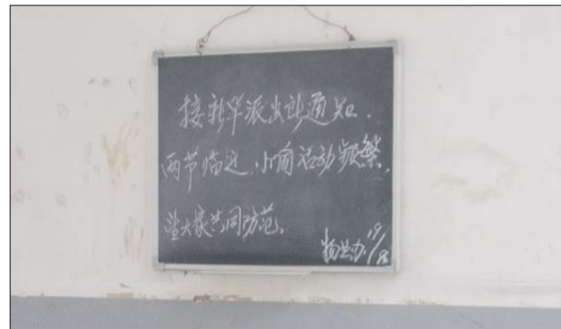 接新华派出所通知.
两节临近.小偷活动频繁,
望大家共同防范.
物业办 19/8